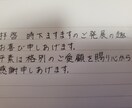 拝啓 時下ますますのご発展の段
お喜び申しあげます。
平素は格別のご愛顧を賜り心から
感謝申しあげます。